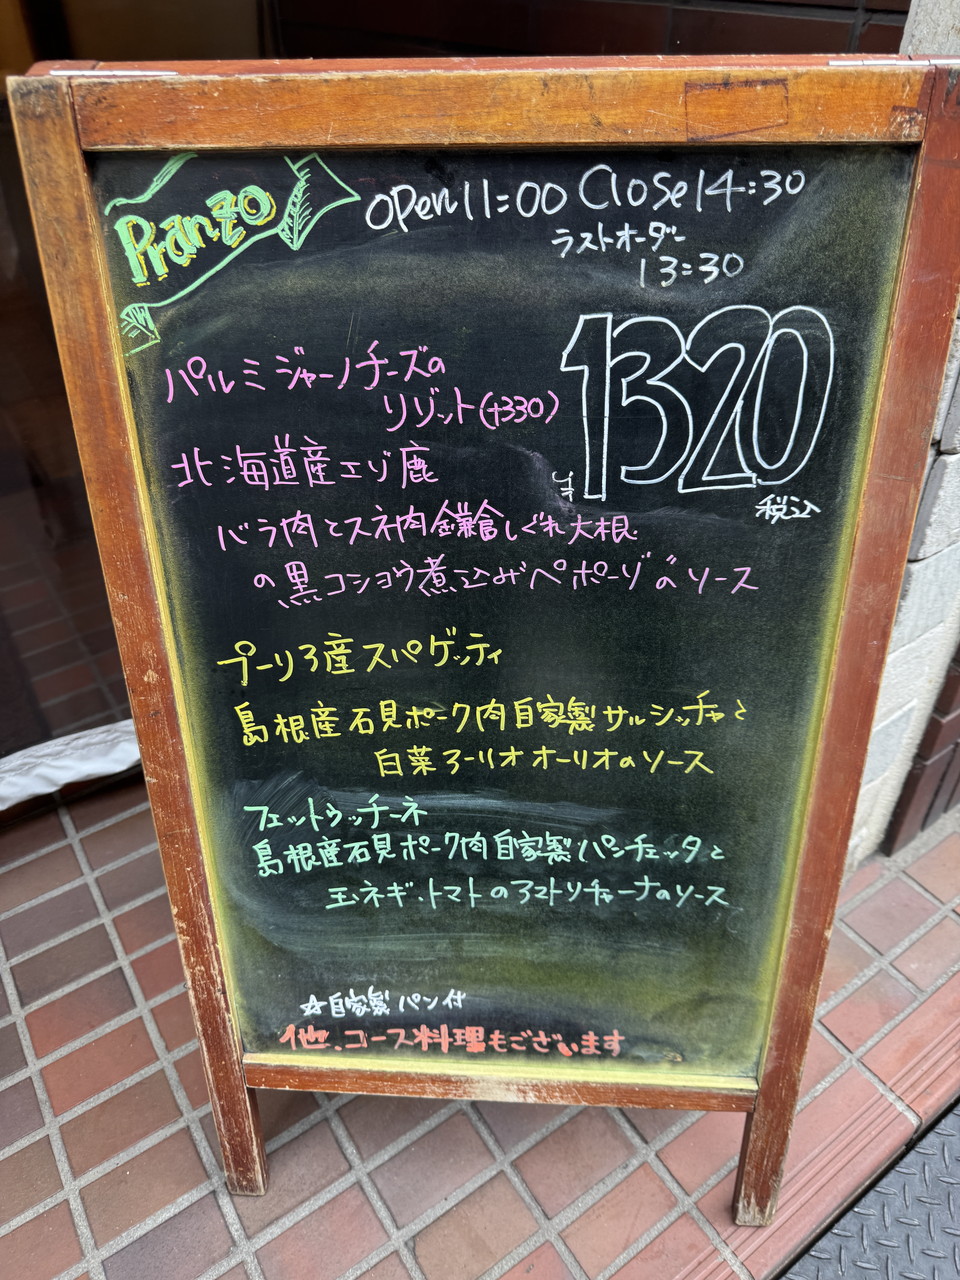 Pranzo
open 11:00 Close 14:30
ラストオーダー
13:30
1320
¥
税込
パルミジャーノチーズの
リゾット(+330)
北海道産エゾ鹿
バラ肉とスネ肉鎌倉しぐれ大根
の黒コショウ煮込みペポーゾのソース
プーリア産スパゲッティ
島根産石見ポーク肉自家製サルシッチャと
白菜アーリオオーリオのソース
フェットゥッチーネ
島根産石見ポーク肉自家製パンチェッタと
玉ネギ.トマトのアマトリチャーナのソース
☆自家製パン付
他、コース料理もございます